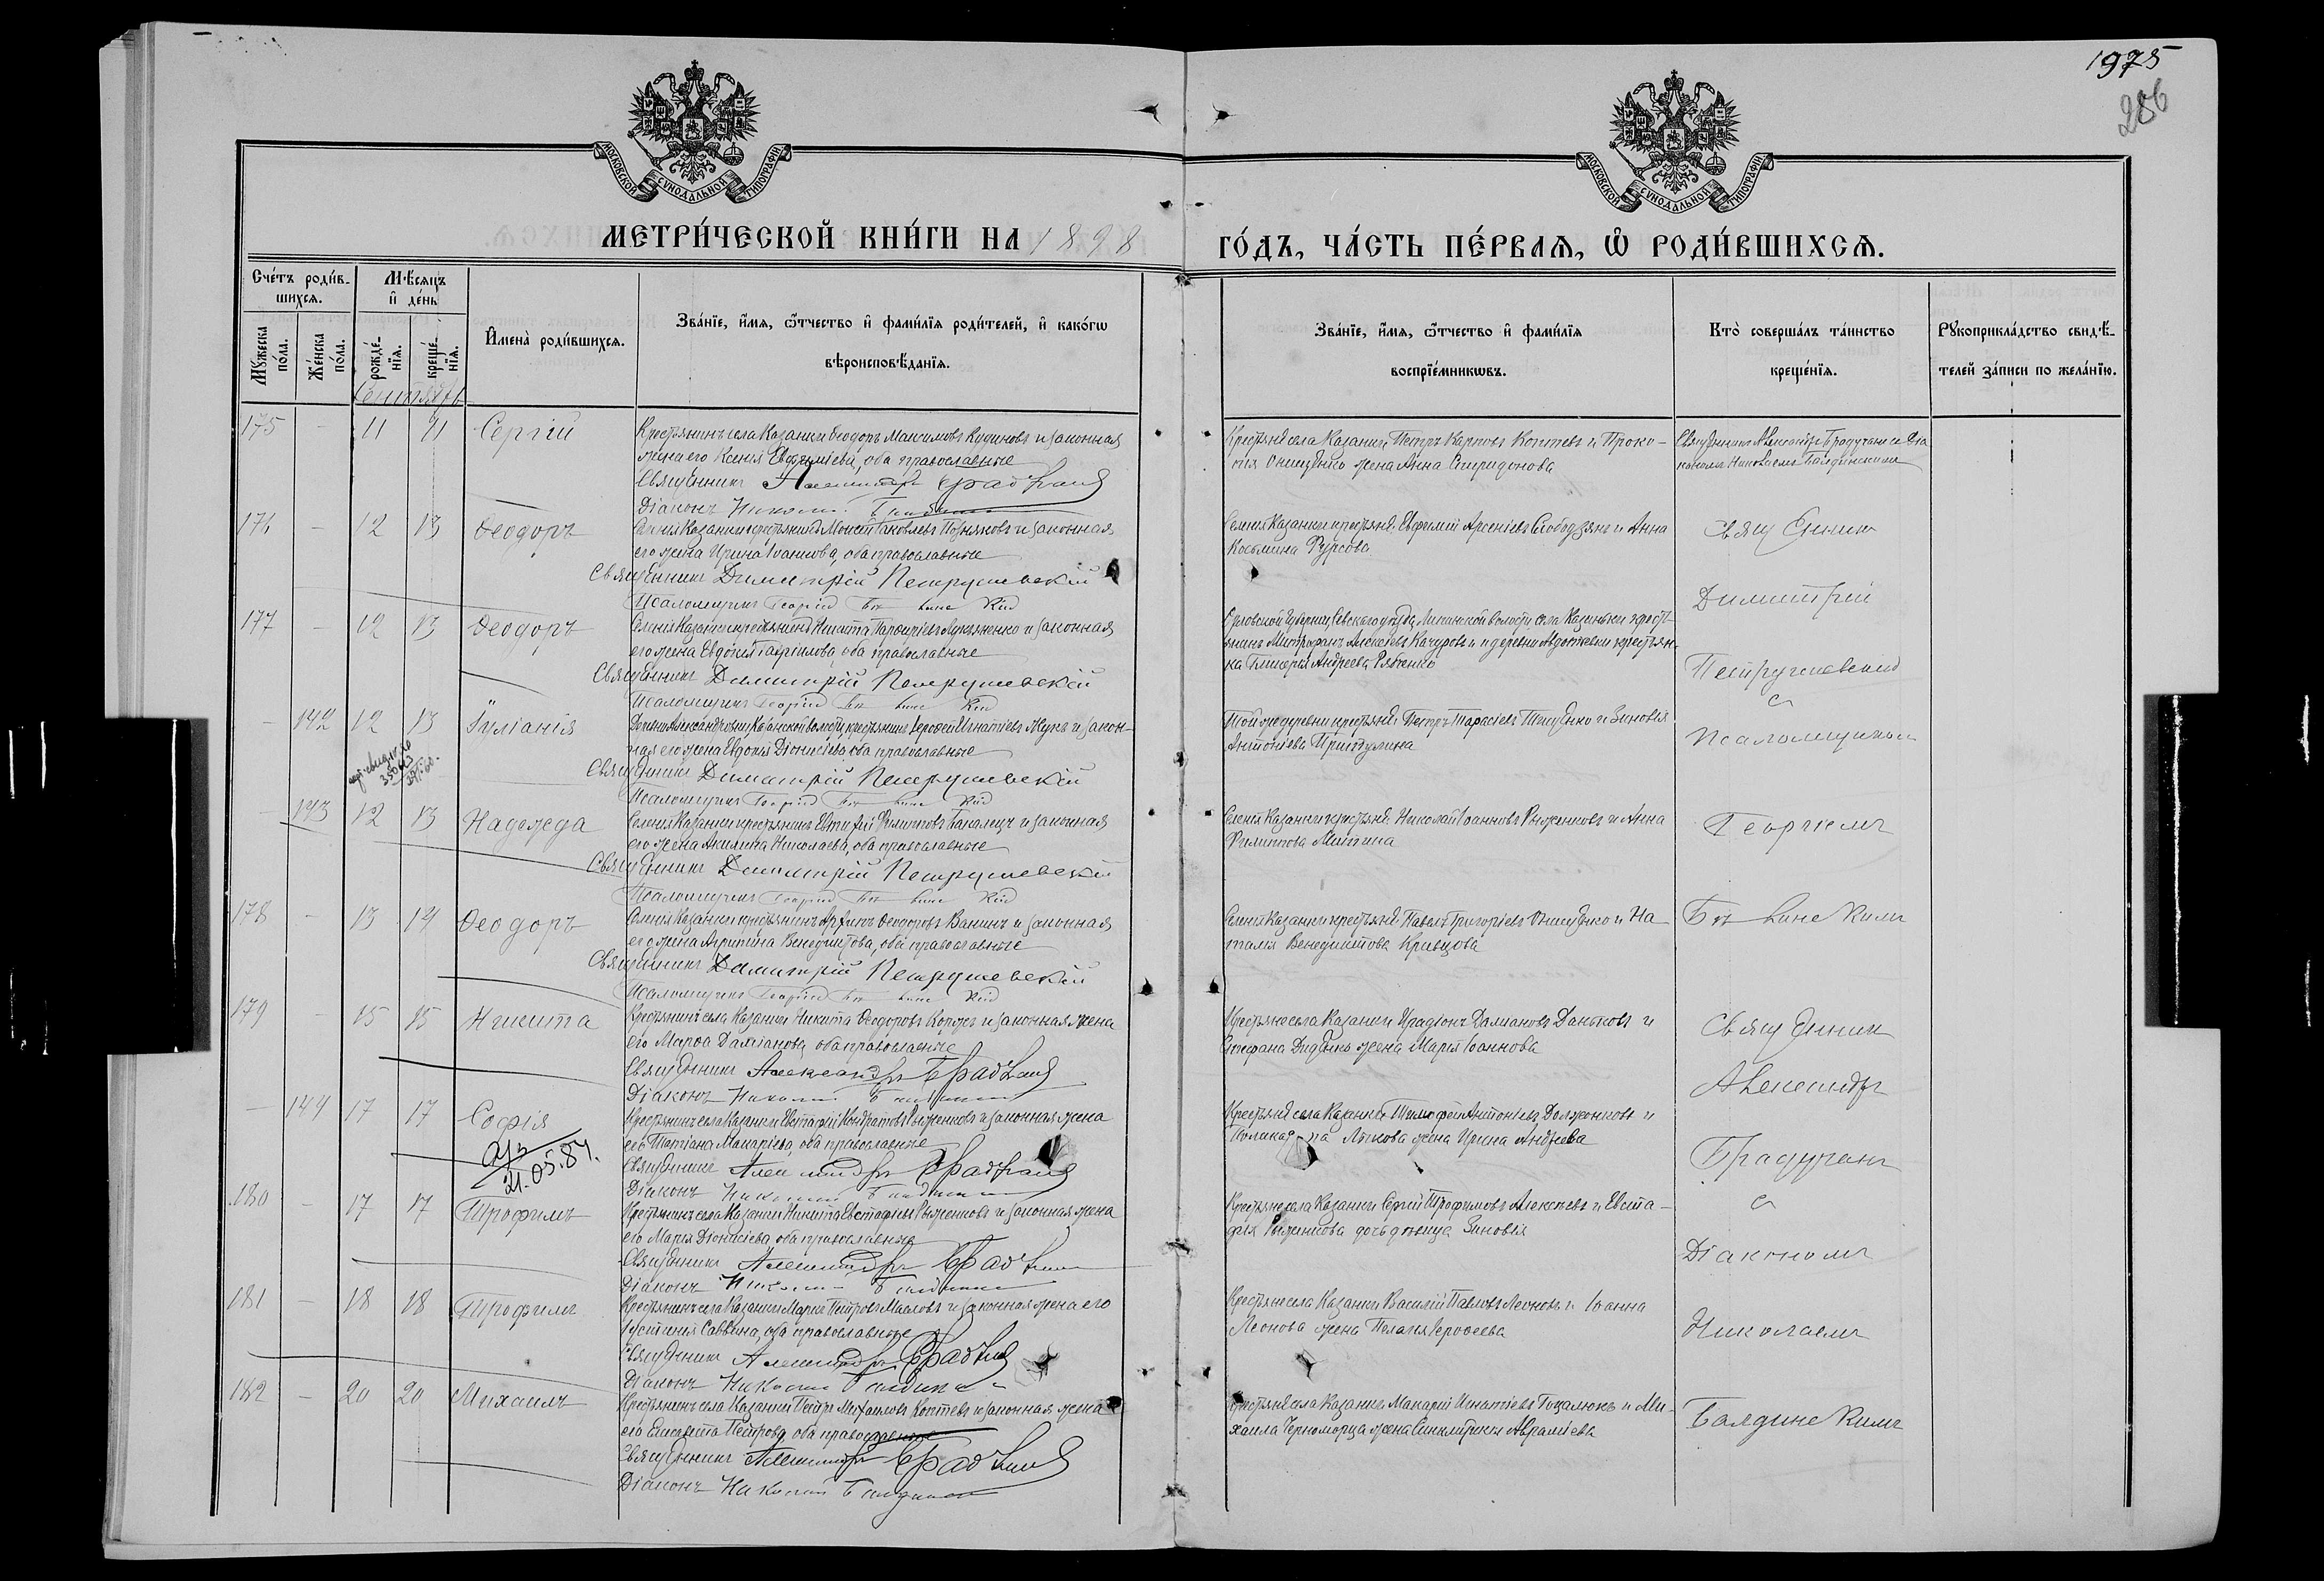 1975
286
МОСКОВСКОЙ СѴНОДАЛЬНОЙ ТИПОГРАФІИ
МОСКОВСКОЙ СѴНОДАЛЬНОЙ ТИПОГРАФІИ
МЕТРИ́ЧЕСКОЙ КНИ́ГИ НА 1898
ГО́ДЪ, ЧА́СТЬ ПЕ́РВАѦ, Ѡ҆ РОДИ́ВШИХСѦ.
Сче́тъ роди́в-
шихся.
Мѣ́сяцъ
и҆ де́нь
Мꙋ́жеска
по́ла.
Же́нска
по́ла.
рожде́-
нїя.
креще́-
нїя.
И҆мена̀ роди́вшихся.
Зва́нїе, и҆́мя, ѻ҆́тчество и҆ фами́лїя роди́телей, и҆ како́гѡ
вѣроисповѣ́данїя.
Зва́нїе, и҆́мя, ѻ҆́тчество и҆ фами́лїя
воспрїе́мникѡвъ.
Кто̀ соверша́лъ та́инство
креще́нїя.
Рꙋкоприкла́дство свидѣ́-
телей за́писи по жела́нїю.
Сентябрь
175 - 11 11 Сергій
Крестьянинъ села Казанки Ѳеодоръ Максимовъ Кудиновъ и законная
жена его Ксенія Евфиміева, оба православные
Священникъ Александръ Брадучанъ
Діаконъ Николай Балдинскій
Крестьяне села Казанки Петръ Карповъ Коптевъ и Проко-
пія Онищенко жена Анна Спиридонова
Священникъ Александръ Брадучанъ съ Діа
кономъ Николаемъ Балдинскимъ
176 - 12 13 Ѳеодоръ
Селенія Казанки крестьянинъ Моисей Іаковлевъ Позняковъ и законная
его жена Ирина Іоаннова, оба православные
Священникъ Димитрій Петрушевскій
Псаломщикъ Георгій
Селенія Казанки крестьяне: Евфимій Арсеніевъ Слободзянъ и Анна
Космина Фурсова
Священникъ
Димитрій
Петрушевский
съ
Псаломщикомъ
Георгіемъ
177 - 12 13 Ѳеодоръ
Селенія Казанки крестьянинъ Никита Порфиріевъ Лукьяненко и законная
его жена Евдокія Гавріилова, оба православные
Священникъ Димитрій Петрушевскій
Псаломщикъ Георгій
Орловской Губерніи Севскаго уѣзда, волости села Казинки крестья-
нинъ Митрофанъ Алексѣевъ Качуровъ и деревни крестьян-
ка Андреева Рябченко
- 142 12 13 Іуліанія
Деревни Александровки Казанской волости, крестьянинъ Іероѳей Игнатіевъ Жукъ и закон-
ная его жена Евдокія Діонисіева, оба православные
Священникъ Димитрій Петрушевскій
Псаломщикъ Георгій
Той же деревни крестьяне: Петръ Тарасіевъ Тещенко и Зиновія
Антоніева
- 143 12 13 Надежда
Селенія Казанки крестьянинъ Евтихій Филипповъ Бакалецъ и законная
его жена Акилина Николаева, оба православные
Священникъ Димитрій Петрушевскій
Псаломщикъ Георгій
Селенія Казанки крестьяне: Николай Іоанновъ Рыженковъ и Анна
Филиппова Митина
178 - 13 14 Ѳеодоръ
Селенія Казанки крестьянинъ Архипъ Ѳеодоровъ Ванинъ и законная
его жена Агрипина Венедиктова, оба православные
Священникъ Димитрій Петрушевскій
Псаломщикъ Георгій
Селенія Казанки крестьяне: Павелъ Григоріевъ Онищенко и На-
талія Венедиктова Кравцова
179 - 15 15 Никита
Крестьянинъ села Казанки Никита Ѳеодоровъ Коржъ и законная жена
его Марѳа Даміанова, оба православные
Священникъ Александръ Брадучанъ
Діаконъ Николай Балдинскій
Крестьяне села Казанки Иродіонъ Даміановъ Даньковъ и
Стефана Диденко жена Марія Іоаннова
Священникъ
Александръ
Брадучанъ
съ
Діакономъ
Николаемъ
Балдинскимъ
- 144 17 17 Софія
21.05.84.
Крестьянинъ села Казанки Евстафій Кондратовъ Рыженковъ и законная жена
его Татіана Макаріева, оба православные
Священникъ Александръ Брадучанъ
Діаконъ Николай Балдинскій
Крестьяне села Казанки Тимофей Антоніевъ Долженковъ и
Поликарпа Лыкова жена Ирина Андреева
180 - 17 17 Трофимъ
Крестьянинъ села Казанки Никита Евстафіевъ Рыженковъ и законная жена
его Марія Діонисіева, оба православные
Священникъ Александръ Брадучанъ
Діаконъ Николай Балдинскій
Крестьяне села Казанки Сергій Трофимовъ Алексѣевъ и Евста-
фія Рыженкова дочь дѣвица Зиновія
181 - 18 18 Трофимъ
Крестьянинъ села Казанки Маркъ Петровъ и законная жена его
Іустинія Саввина, оба православные
Священникъ Александръ Брадучанъ
Діаконъ Николай Балдинскій
Крестьяне села Казанки Василій Павловъ Леоновъ и Іоанна
Леонова жена Пелагія Іероѳеева
182 - 20 20 Михаилъ
Крестьянинъ села Казанки Петръ Михаиловъ Коптевъ и законная жена
его Елисавета Петрова, оба православные
Священникъ Александръ Брадучанъ
Діаконъ Николай Балдинскій
Крестьяне села Казанки Макарій Игнатіевъ Гоцалюкъ и Ми-
хаила Черноморца жена Синклитикія Авраміева